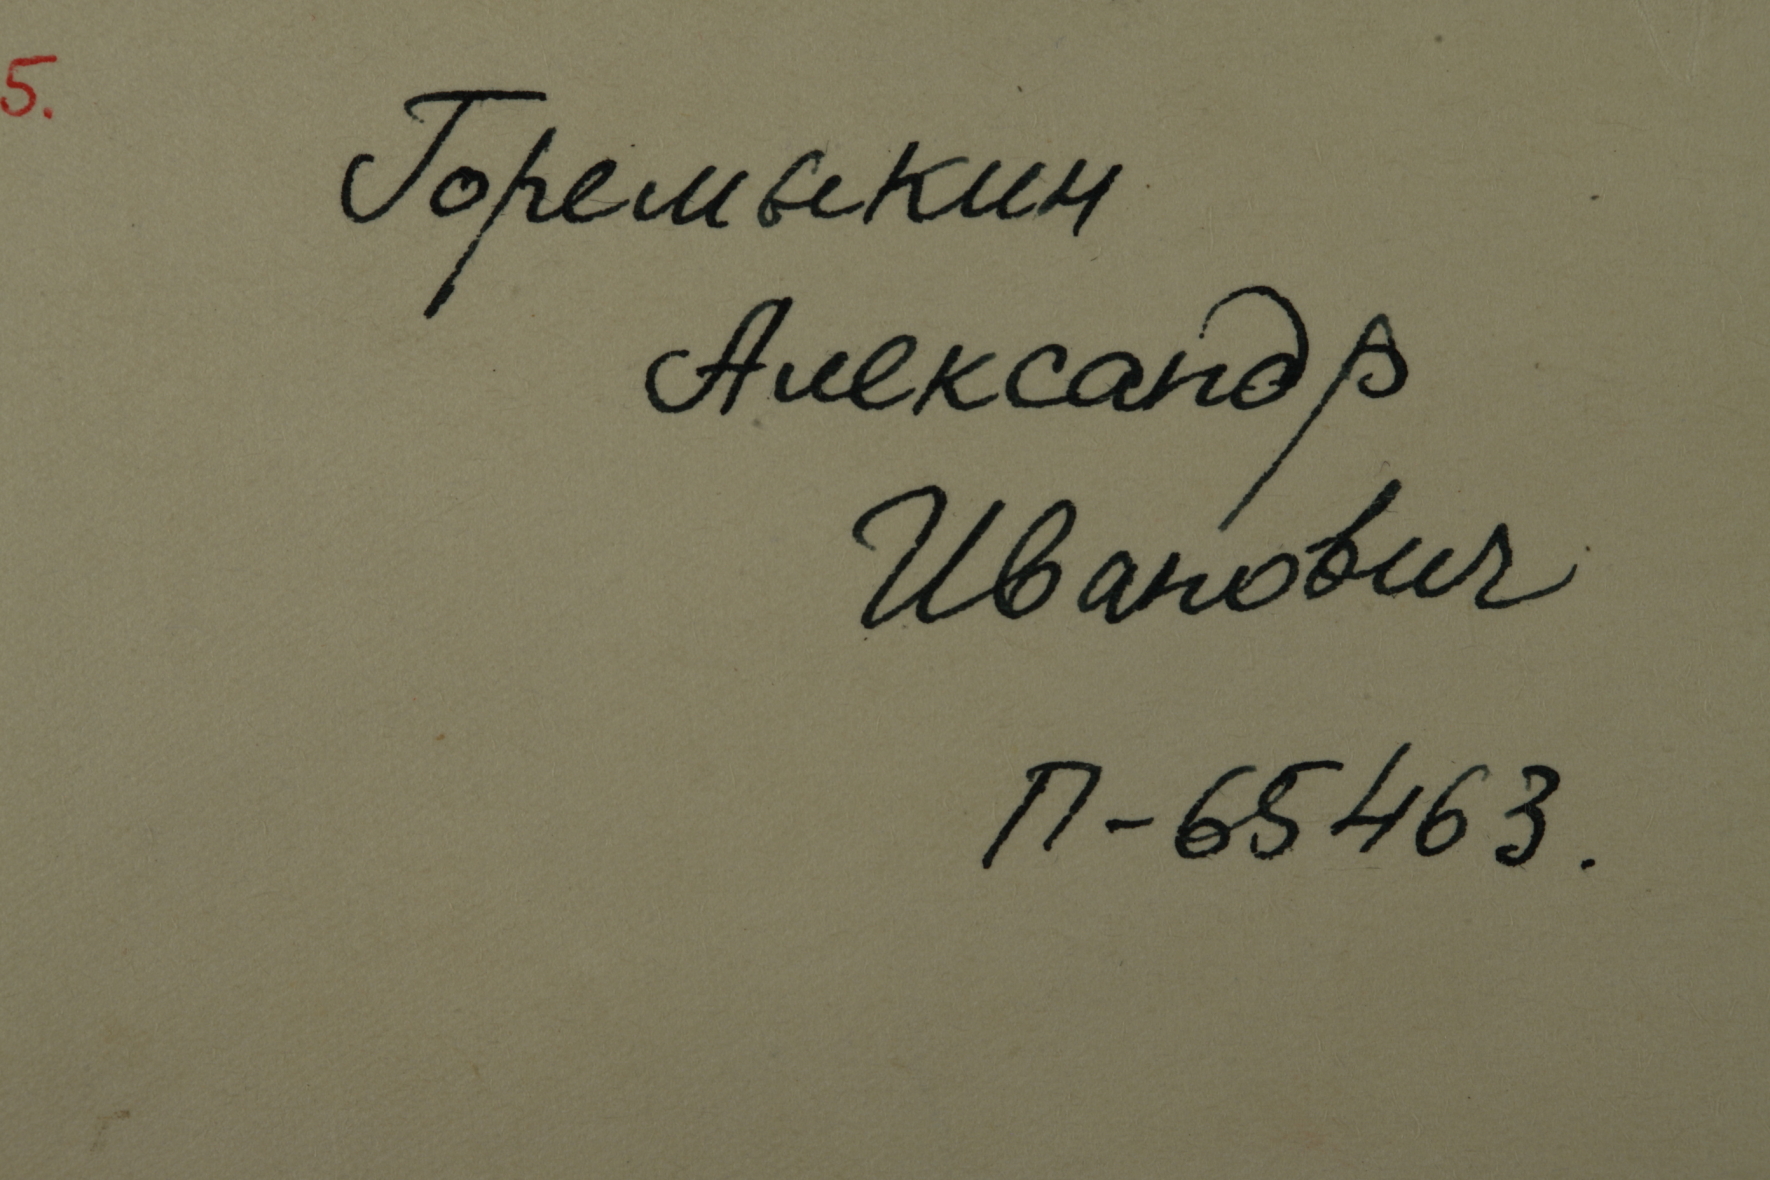 5.
Горемыкин
Александр
Иванович
П-65463.